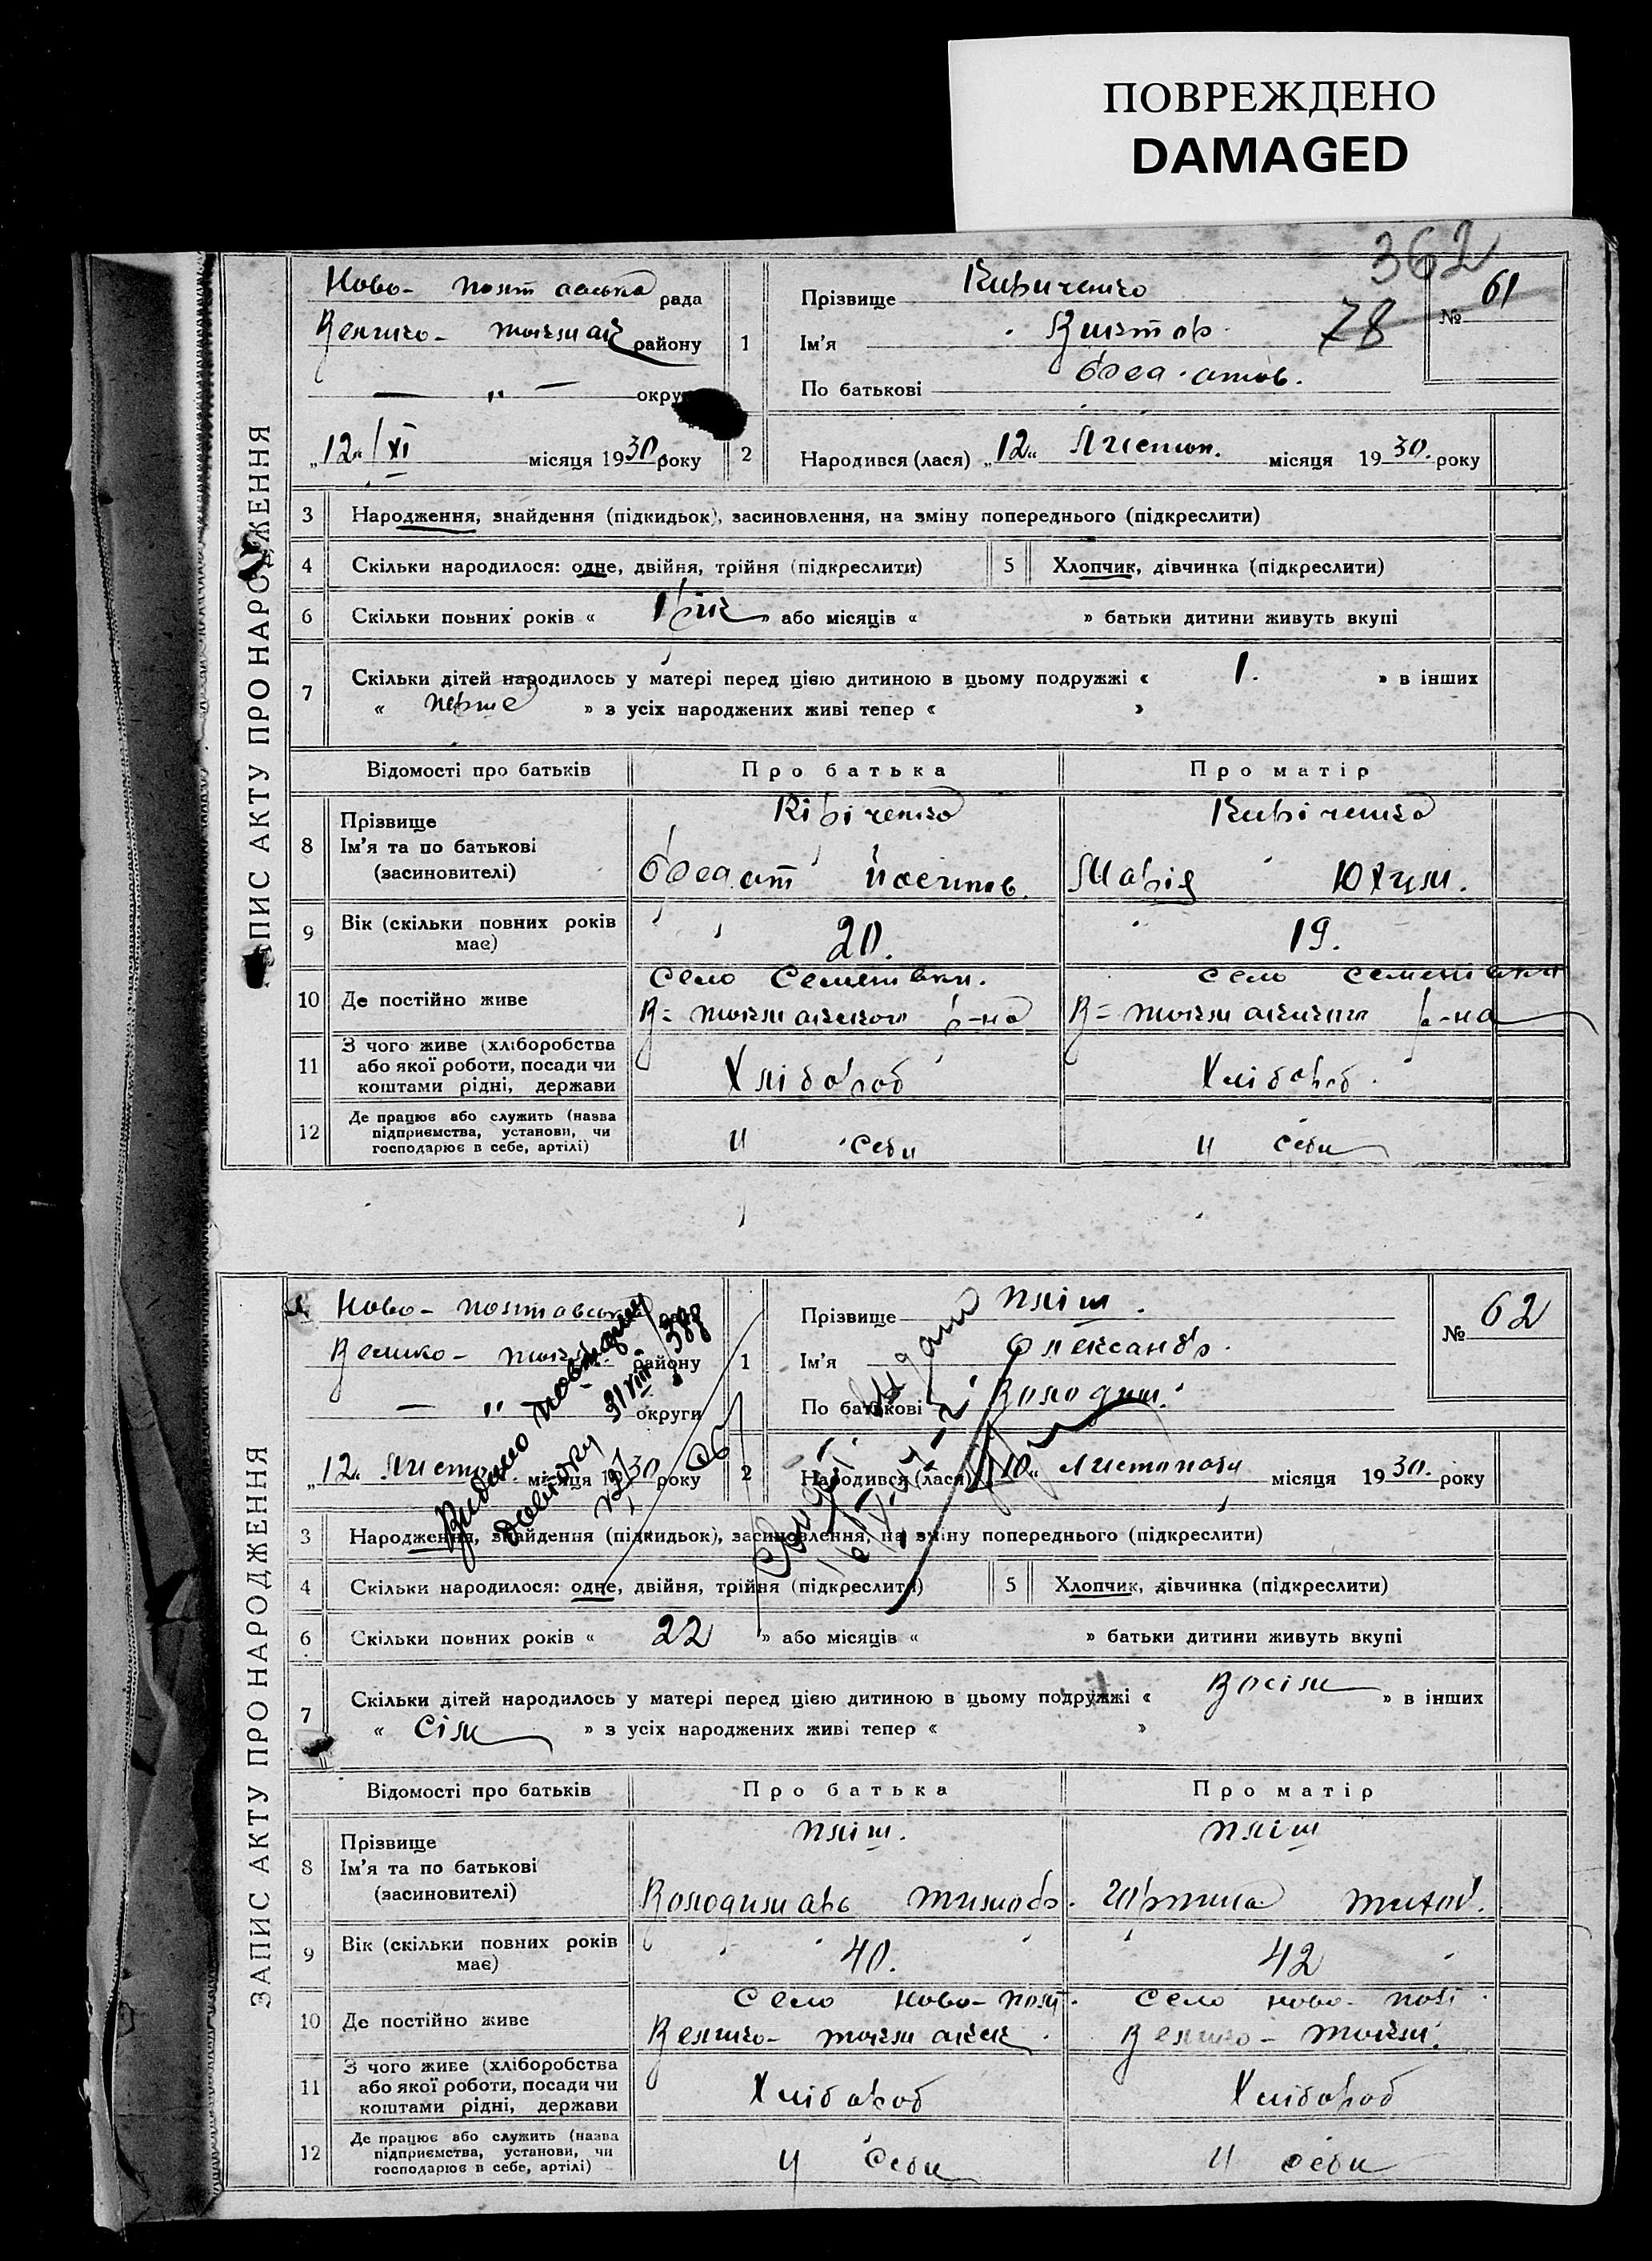 ПОВРЕЖДЕНО
DAMAGED
362
ЗАПИС АКТУ ПРО НАРОДЖЕННЯ
Ново- рада
Велико- Токмак району
— „ — округи
„12“ XI місяця 1930 року
1
Прізвище Кириченко
Ім’я Виктор
По батькові
78
№ 61
2
Народився (лася) „12“ Листоп. місяця 1930. року
3 Народження, знайдення (підкидьок), засиновлення, на зміну попереднього (підкреслити)
4 Скільки народилося: одне, двійня, трійня (підкреслити)
5 Хлопчик, дівчинка (підкреслити)
6 Скільки повних років « 1 рік » або місяців « » батьки дитини живуть вкупі
7 Скільки дітей народилось у матері перед цією дитиною в цьому подружжі « 1. » в інших
« перше » з усіх народжених живі тепер « »
Відомості про батьків
Про батька
Про матір
8 Прізвище
Ім’я та по батькові
(засновителі)
Кіріченко
Киріченко
Марія Юхим.
9 Вік (скільки повних років має)
20.
19.
10 Де постійно живе
Село Семенівки.
В=Токмакского р-на
Село Семенівки
В=Токмакского р-на
11 З чого живе (хліборобства
або якої роботи, посади чи
коштами рідні, держави
Хлібороб
Хлібороб.
12 Де працює або служить (назва
підприємства, установи, чи
господарює в себе, артілі)
и себи
и себи
ЗАПИС АКТУ ПРО НАРОДЖЕННЯ
Ново-
Велико- Токм. району
— „ — округи
„12“ Листоп. місяця 1930 року
Видано повторну
31 VIII 38р
1
Прізвище Пліш.
Ім’я Олександр.
По батькові Володим.
№ 62
2
Народився (лася) „10“ Листопада місяця 1930. року
3 Народження, знайдення (підкидьок), засиновлення, на зміну попереднього (підкреслити)
4 Скільки народилося: одне, двійня, трійня (підкреслити)
5 Хлопчик, дівчинка (підкреслити)
6 Скільки повних років « 22 » або місяців « » батьки дитини живуть вкупі
7 Скільки дітей народилось у матері перед цією дитиною в цьому подружжі « Восім » в інших
« Сім » з усіх народжених живі тепер « »
Відомості про батьків
Про батька
Про матір
8 Прізвище
Ім’я та по батькові
(засиновителі)
Пліш.
Пліш
Володимарь
9 Вік (скільки повних років має)
40.
42
10 Де постійно живе
Село Ново-Полт.
Велико- Токмакск.
Село Ново- Полт.
Велико- Токм.
11 З чого живе (хліборобства
або якої роботи, посади чи
коштами рідні, держави
Хлібороб
Хлібороб
12 Де працює або служить (назва
підприємства, установи, чи
господарює в себе, артілі)
и себи
и себи